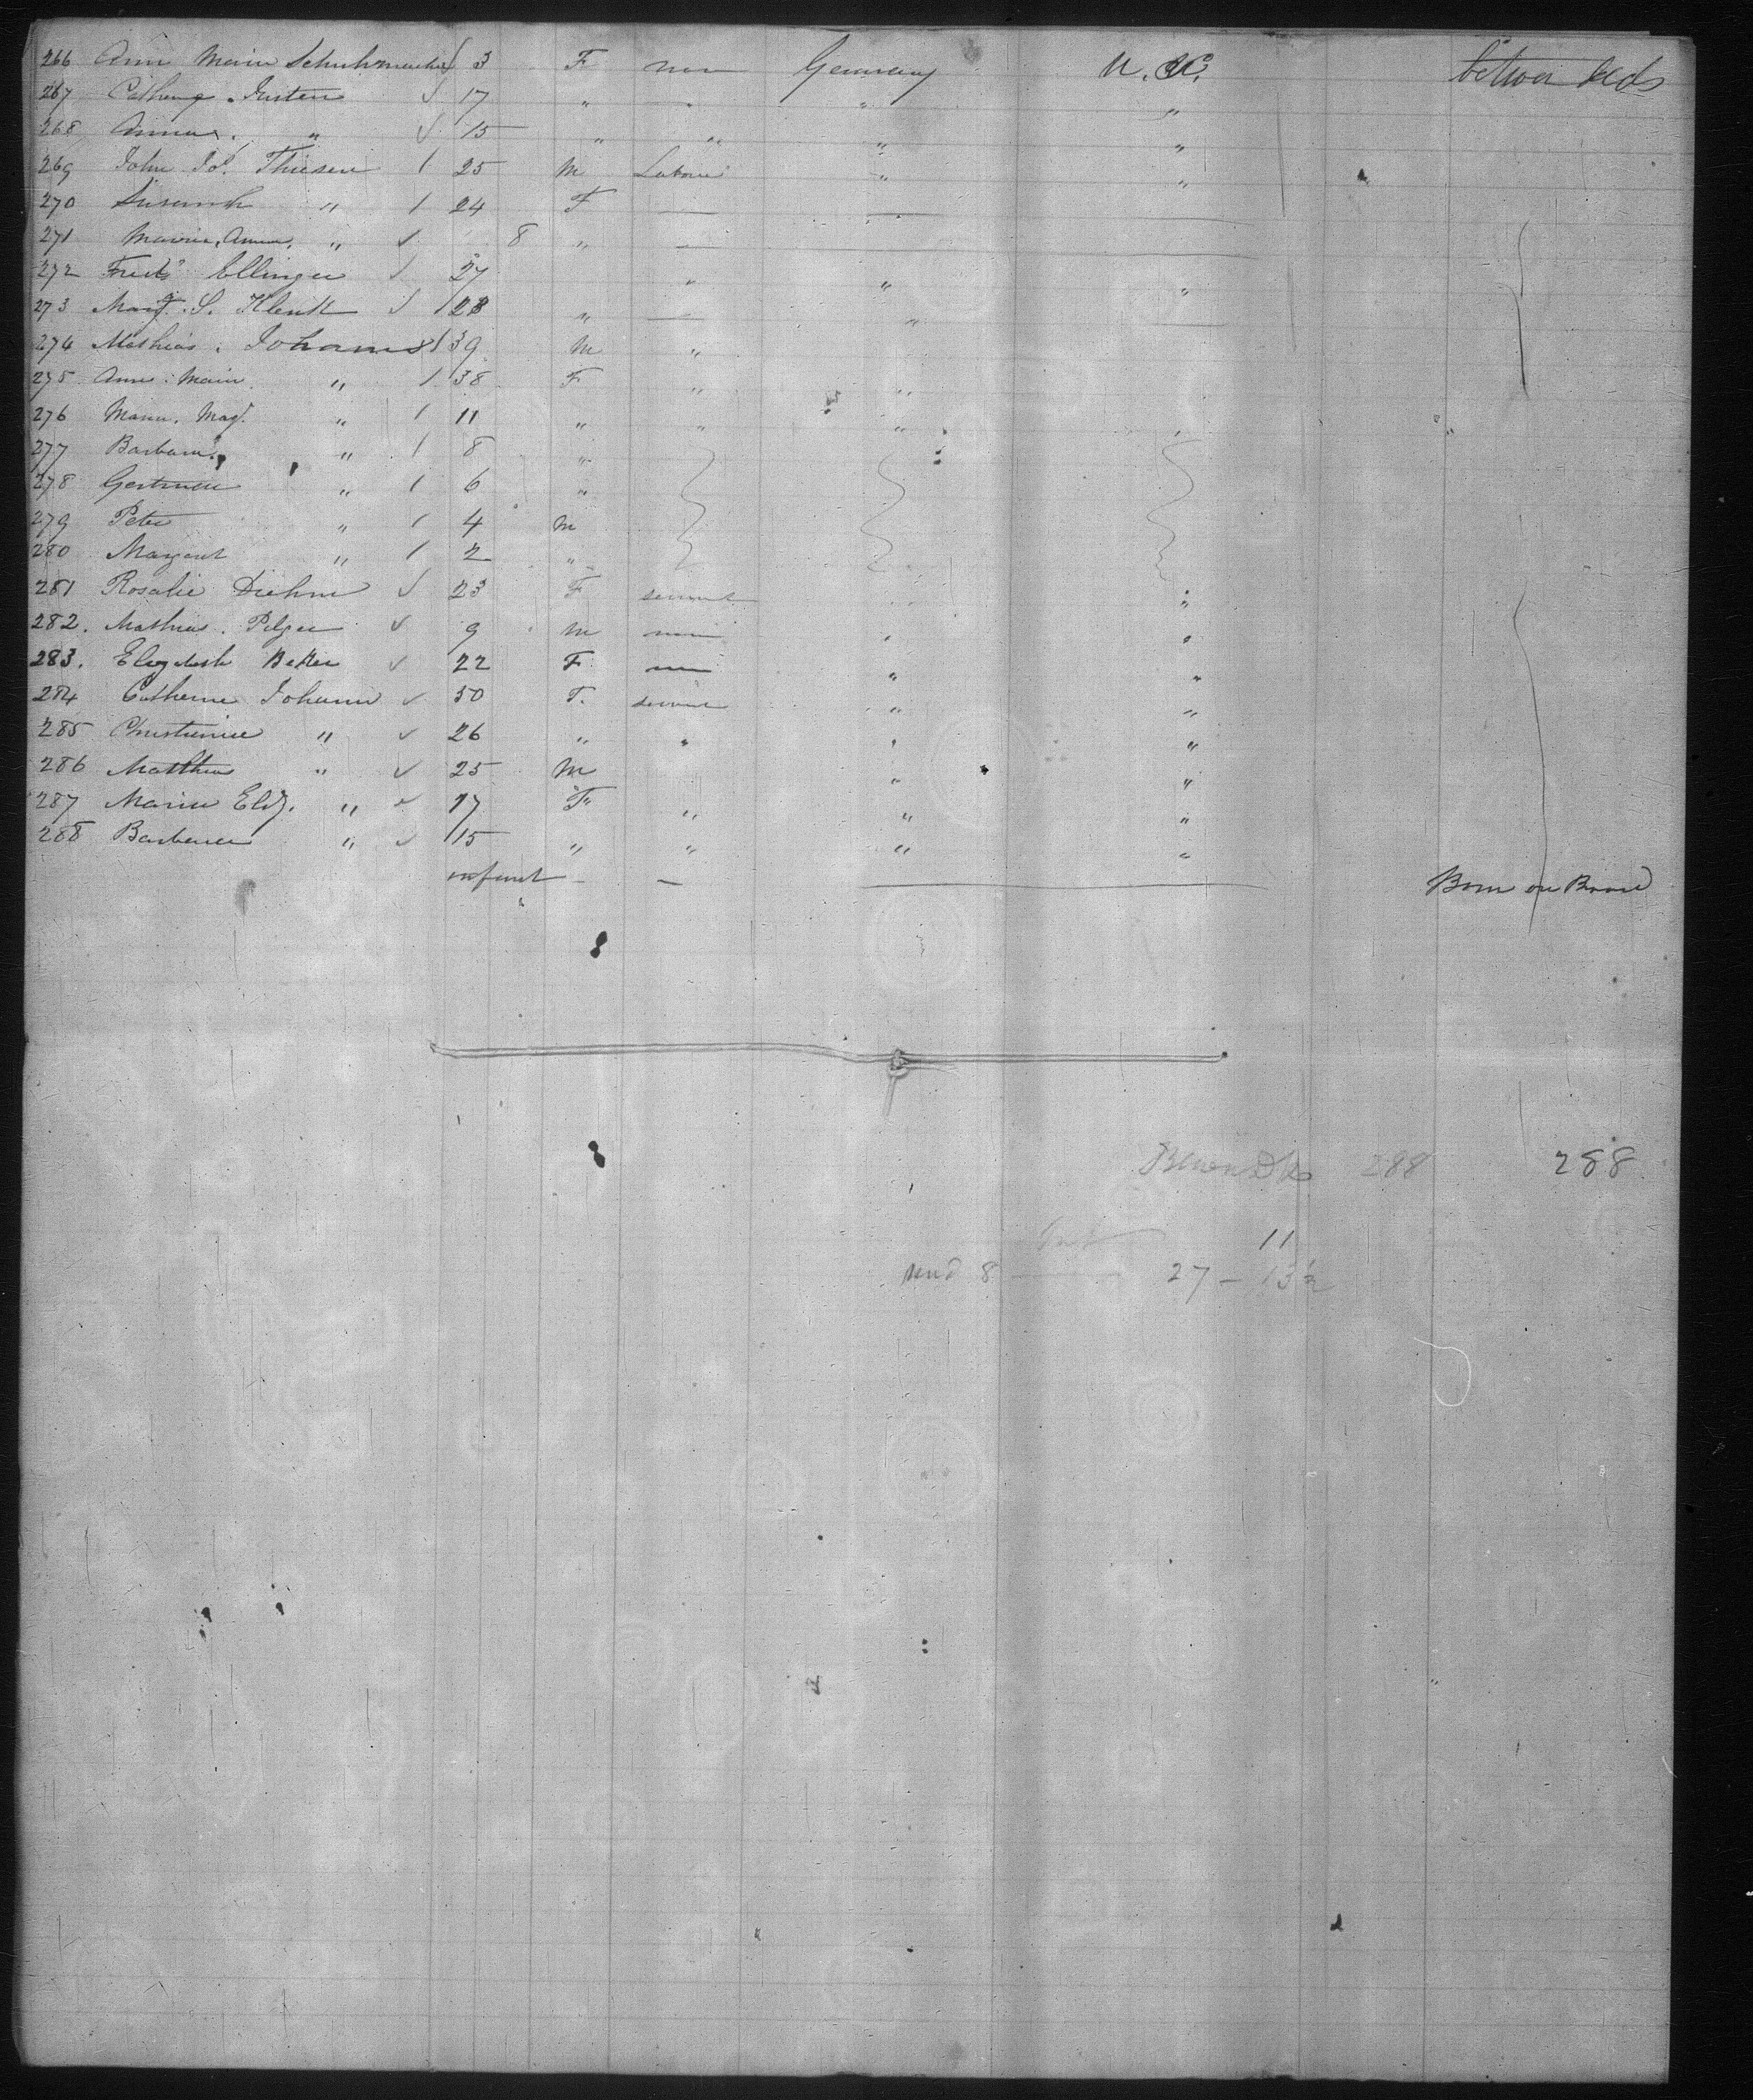 266 Ann Maria Schuhmacher 3 F non Germany U. S. between decks
267 Justen √ 17 " " " "
268 Anna " √ 15 " " " "
269 John Jos. Thiesen / 25 M Laborer " "
270 Susannh " / 24 F — —
271 Maria Anna " √ 8 " —
272 Fredk Ellinger √ 27 " " "
273 Marg. S. Klenk √ 28 " — "
274 Mathias Johannes / 39 M "
275 Ann Maria " / 38 F " "
276 Maria Mag. " / 11 " " " "
277 Barbara " / 8 "
278 Gertrude " / 6 "
279 Peter " / 4 M
280 Margaret " / 2 "
281 Rosalie Diehm √ 23 F servant " "
282. Mathias Pilger √ 9 M non " "
283. Elizabeth Becker √ 22 F non " "
284 Catherine Johann √ 50 F. servant " "
285 Christiana " √ 26 " " " "
286 Matthias " √ 25 M " "
287 Maria Eliz. " √ 17 F " " "
288 Barbara " √ 15 " " " "
infant — — Born on Board
288 288
11
und 8 — 27 — 13 ½